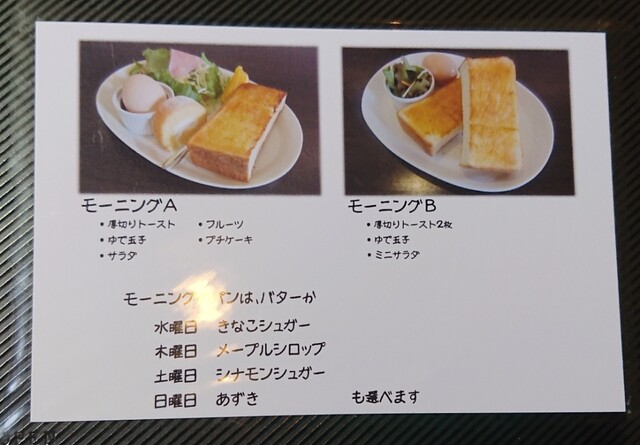 モーニングA
・厚切りトースト ・フルーツ
・ゆで玉子 ・プチケーキ
・サラダ
モーニングB
・厚切りトースト2枚
・ゆで玉子
・ミニサラダ
モーニング パンは、バターか
水曜日 きなこシュガー
木曜日 メープルシロップ
土曜日 シナモンシュガー
日曜日 あずき も選べます